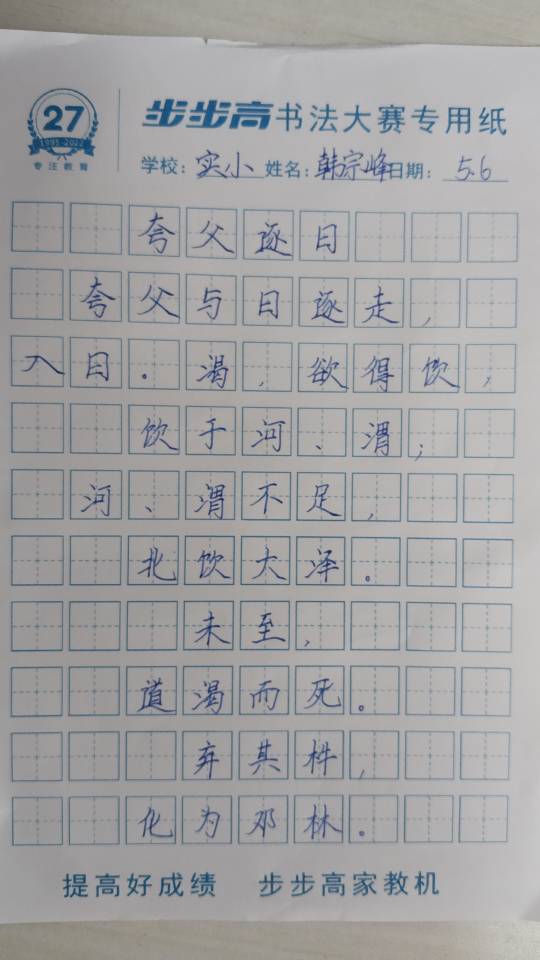 27
1995-2022
专注教育
步步高书法大赛专用纸
学校：实小 姓名：韩宗峰 日期：5.6
夸父逐日
夸父与日逐走，
入日。渴，欲得饮，
饮于河、渭；
河、渭不足，
北饮大泽。
未至，
道渴而死。
弃其杖，
化为邓林。
提高好成绩 步步高家教机